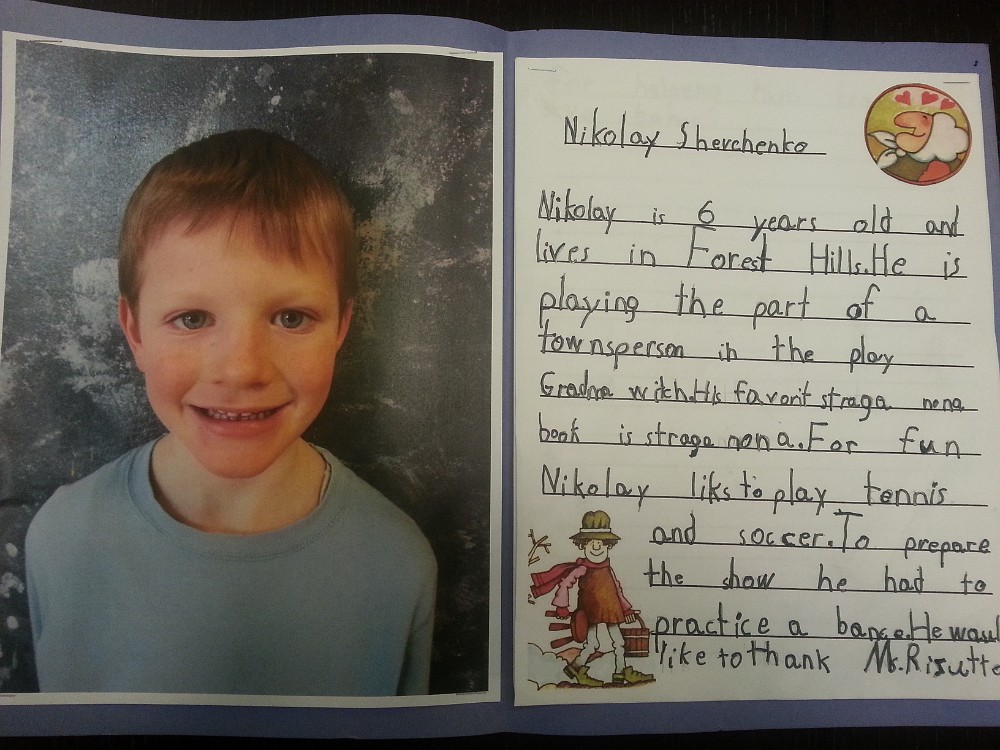 Nikolay Sherchenko
Nikolay is 6 years old and
lives in Forest Hills.He is
playing the part of a
townsperson in the play
Gradna witch.His favorit straga nona
book is straga nona.For fun
Nikolay liks to play tennis
and soccer.To prepare
the show he had to
practice a bance.He woul
like to thank Ms.Risutto